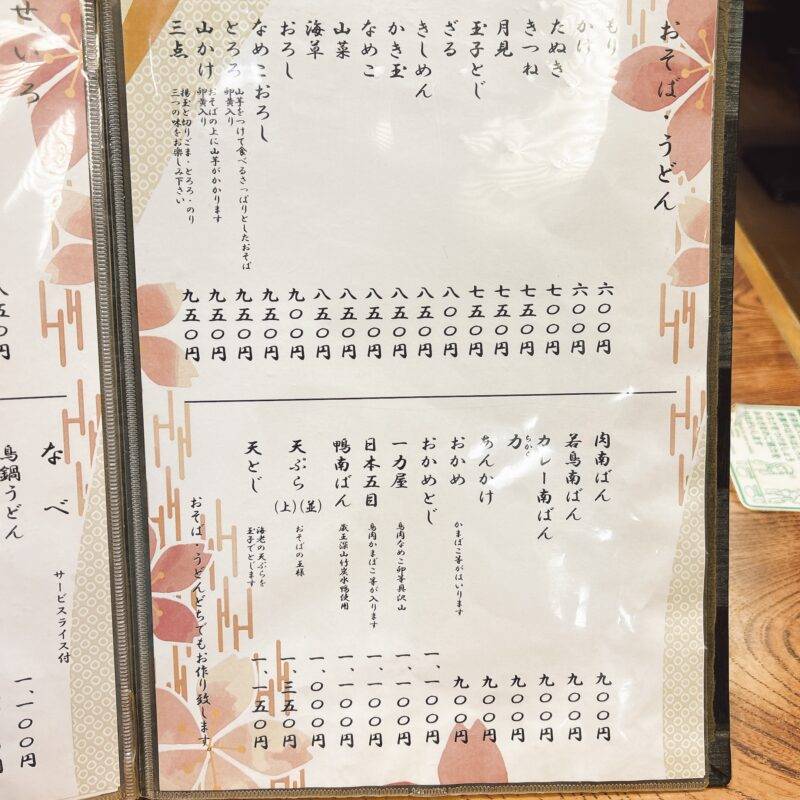 おそば・うどん
もり 六〇〇円
かけ 六〇〇円
たぬき 七〇〇円
きつね 七五〇円
月見 七五〇円
玉子とじ 七五〇円
ざる 八〇〇円
きしめん 八五〇円
かき玉 八五〇円
なめこ 八五〇円
山菜 八五〇円
海草 八五〇円
おろし 九〇〇円
なめこおろし 九五〇円
とろろ 九五〇円
山芋をつけて食べるさっぱりとしたおそば
卵黄入り
山かけ 九五〇円
おそばの上に山芋がかかります
卵黄入り
三点 九五〇円
揚玉と切りごま・とろろ・のり
三つの味をお楽しみ下さい
肉南ばん 九〇〇円
若鳥南ばん 九〇〇円
カレー南ばん 九〇〇円
力 ちから 九〇〇円
あんかけ 九〇〇円
おかめ かまぼこ等がはいります 九〇〇円
おかめとじ 一、一〇〇円
一力屋 鳥肉なめこ卵等具沢山 一、一〇〇円
日本五目 鳥肉かまぼこ等が入ります 一、一〇〇円
鴨南ばん 蔵王深山竹炭水鴨使用 一、一〇〇円
天ぷら おそばの王様
(並) 一、〇〇〇円
(上) 一、三五〇円
天とじ 一、一五〇円
海老の天ぷらを
玉子でとじます
おそば・うどんどちらでもお作り致します
せいろ
八五〇円
なべ
サービスライス付
鳥鍋うどん
一、一〇〇円